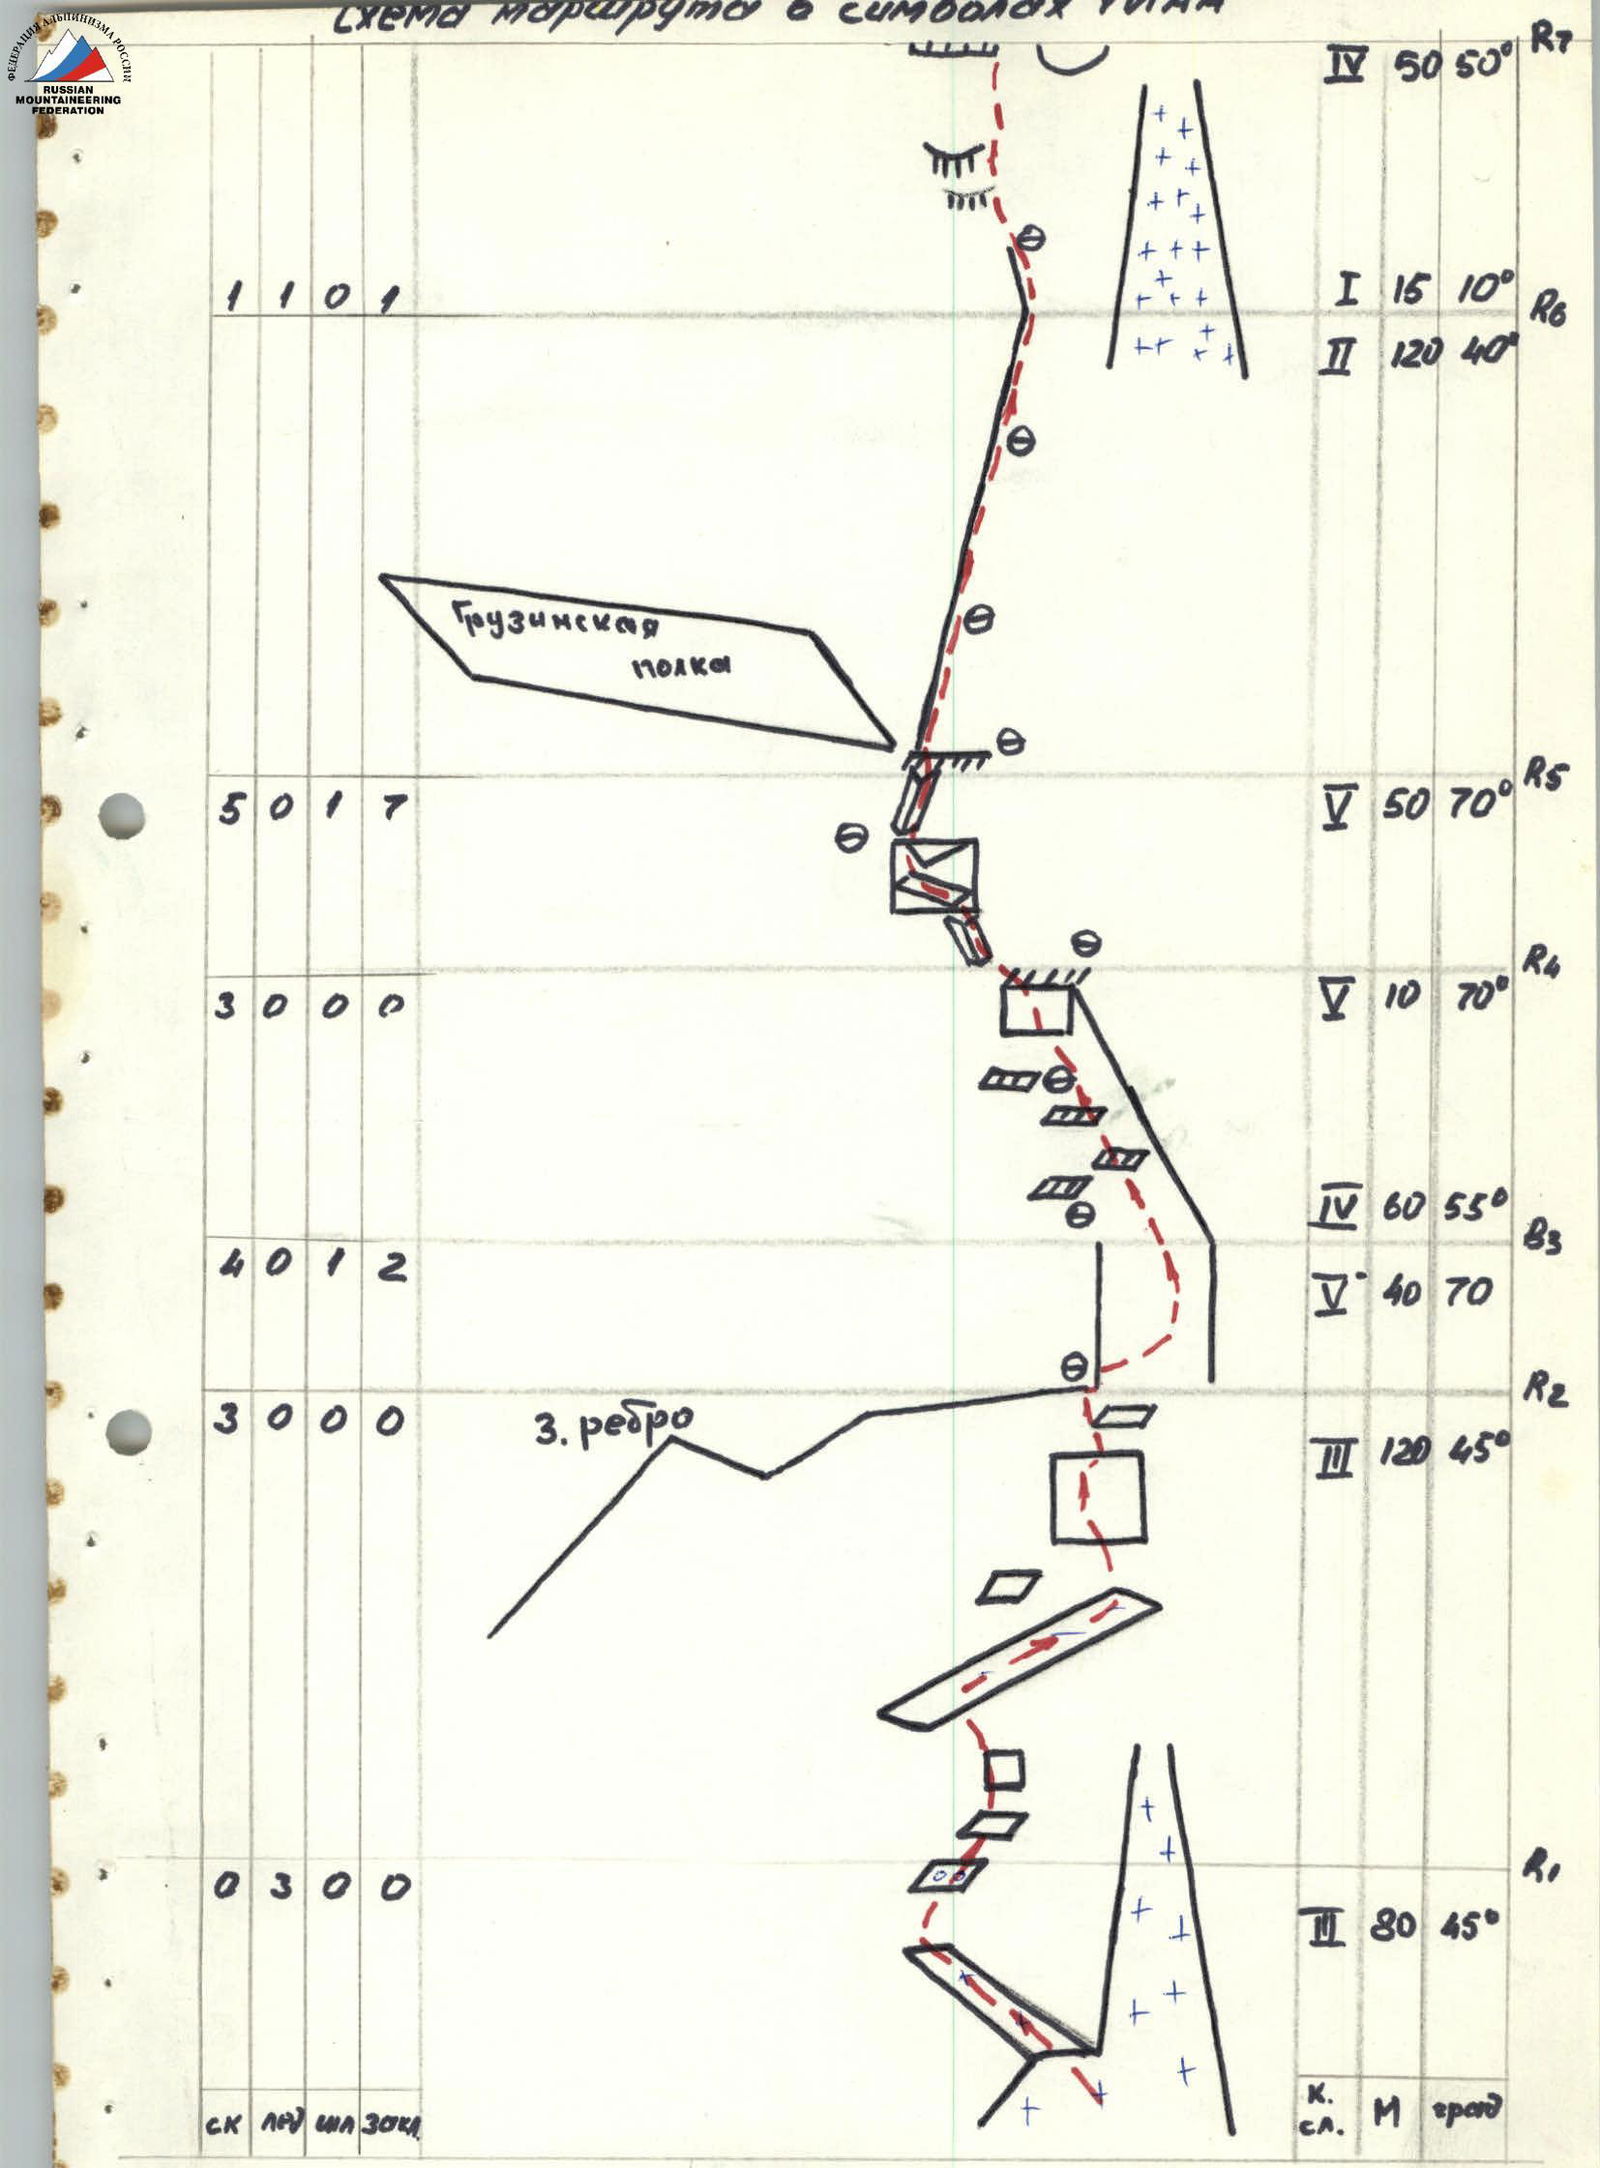 схема маршрута в символах УИАА
ФЕДЕРАЦИЯ АЛЬПИНИЗМА РОССИИ
RUSSIAN
MOUNTAINEERING
FEDERATION
R7
IV 50 50°
1 1 0 1
I 15 10°
R6
II 120 40°
Грузинская
полка
R5
5 0 1 7
V 50 70°
R4
3 0 0 0
V 10 70°
IV 60 55°
R3
4 0 1 2
V- 40 70
R2
3 0 0 0
З. ребро
III 120 45°
R1
0 3 0 0
III 80 45°
ск лед шл закл.
к. сл. М град